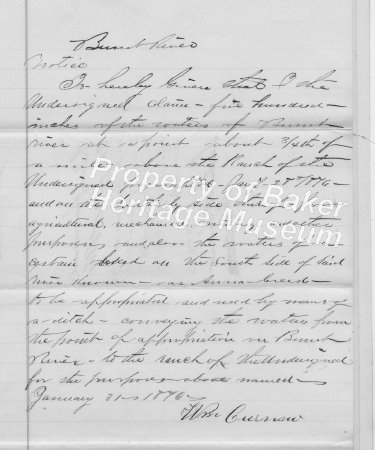 Burnt River
Notice
Is hereby Given that I the
Undersigned claim - five hundred
inches of the waters of Burnt
river at a point about 3/4th of
a mile above the Ranch of the
Undersigned
Property of Baker
Heritage Museum
agricultural, mechanical, mining and other
purposes and also the waters of
certain on the South side of said
river known - as Anna Creek -
to be appropriated and used by means of
a ditch - conveying the waters from
the point of appropriation on Burnt
River - to the ranch of the Undersigned
for the purposes above named -
January 31st 1896 -
Wm Curnow